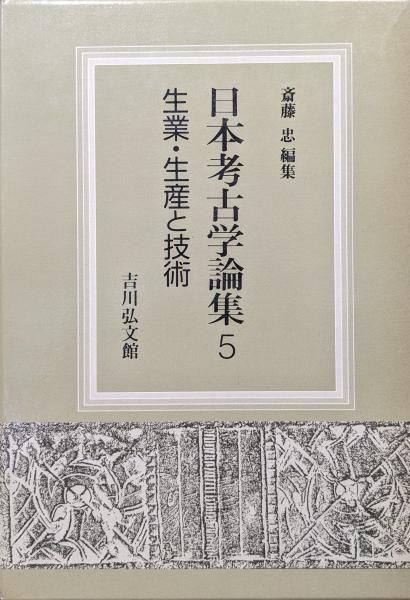 斎藤 忠 編集
日本考古学論集5
生業・生産と技術
吉川弘文館